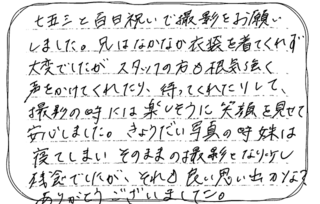 七五三と百日祝いで撮影をお願い
しました。兄はなかなか衣装を着てくれず
大変でしたがスタッフの方も根気強く
声をかけてくれたり、待ってくれたりして、
撮影の時には楽しそうに笑顔を見せて
安心しました。きょうだい写真の時妹は
寝てしまいそのままの撮影となり少し
残念でしたが、それも良い思い出かなぁ?
ありがとうございました。